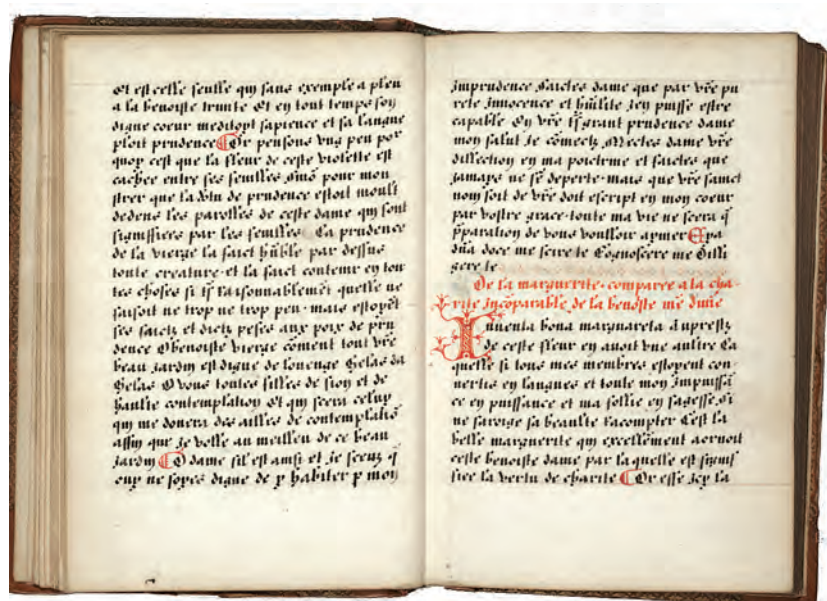 Et est celle seulle qui sans exemple a pleu
a la benoiste trinite Et en tout temps son
digne coeur meditoyt sapience et sa langue
ploit prudence Or pensons ung peu por
quoy cest que la fleur de ceste violette est
cachee entre ses feuilles sinō pour mon
strer que la v̄tu de prudence estoit moult
dedens les parolles de ceste dame qui sont
signiffiees par les feuilles La prudence
de la vierge la faict hūble par dessus
toute creature et la faict contenir en tou
tes choses si tsͬ raisonnablemēt quelle ne
faisoit ne trop ne trop peu mais estoyēt
ses faictz et dictz peses aux poix de pru
dence O benoiste vierge cōment tout vrē
beau Jardin est digne de louenge helas da
helas O vous toutes filles de sion et de
haulte contemplation Et qui sera celuy
qui me donera des ailles de contemplatiō
affin que Je volle au meillen de ce beau
Jardin O dame sil est ainsi et Je scens q̄
ne soyes digne de y habiter p moy
Imprudence faictes dame que par vrē pu
rete Innocence et hūilite Jen puisse estre
capable En vrē tsͬ grant prudence dame
mon salut Je cōmectz Mectes dame vrē
dillection en ma poictrine et faictes que
Jamays ne sē deperte mais que vrē sainct
nom soit de vrē doit escript en mon coeur
par vostre grace toute ma vie ne scera q̄
p̄paration de vous voulloir aymer
dn̄a doce me scire te Cognoscere me dilli
gere te
De la marguerite comparee a la cha
rite Incōparable de la benoiste mē
Inuenta bona margareta Aupresty
de ceste fleur en auoit vne aultre La
quelle si tous mes membres estoyent con
uertis en langues et toute mon Impuissā
ce en puissance et ma follie en sagesse Si
ne saroige sa beaulte racompter Cest la
belle marguerite qui excellēment aornoit
ceste benoiste dame par laquelle est signif
fiee la vertu de charite Or esse Icy la